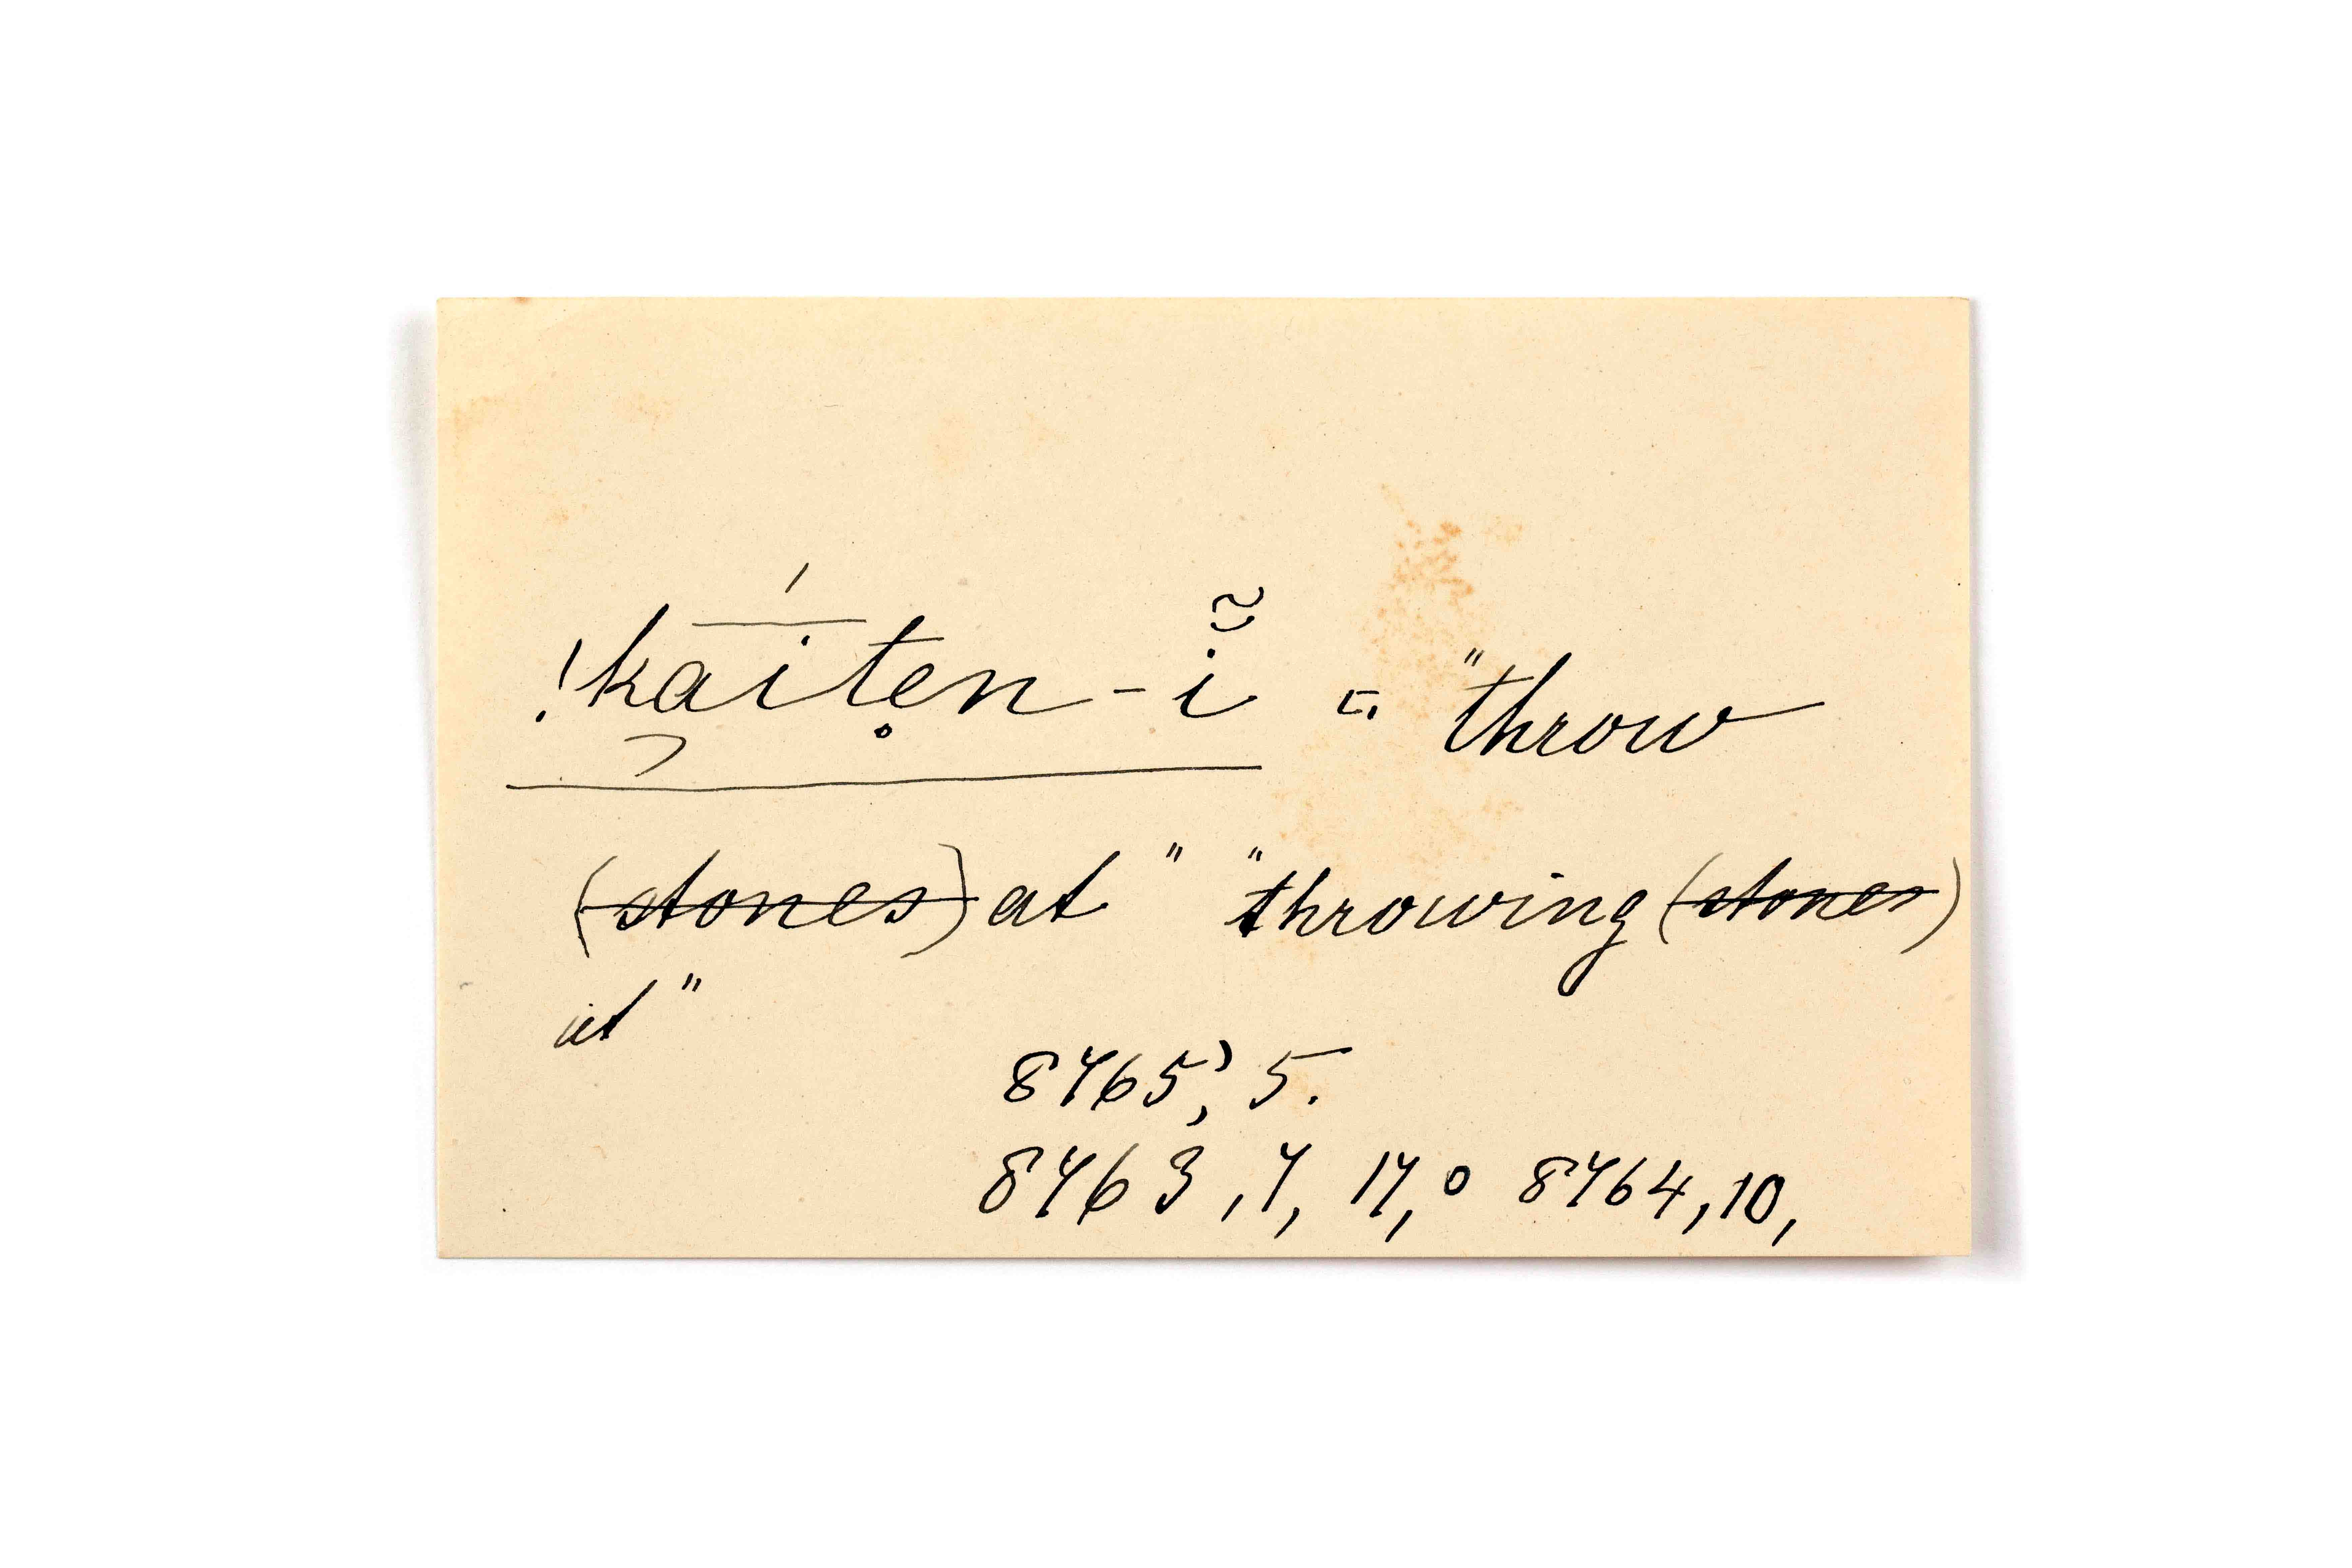 !k̠āíten̥-ĭ̃ = "throw
(stones) at" "throwing (stones)
at"
8765, 5.
8763, 7, 17, 8764, 10,